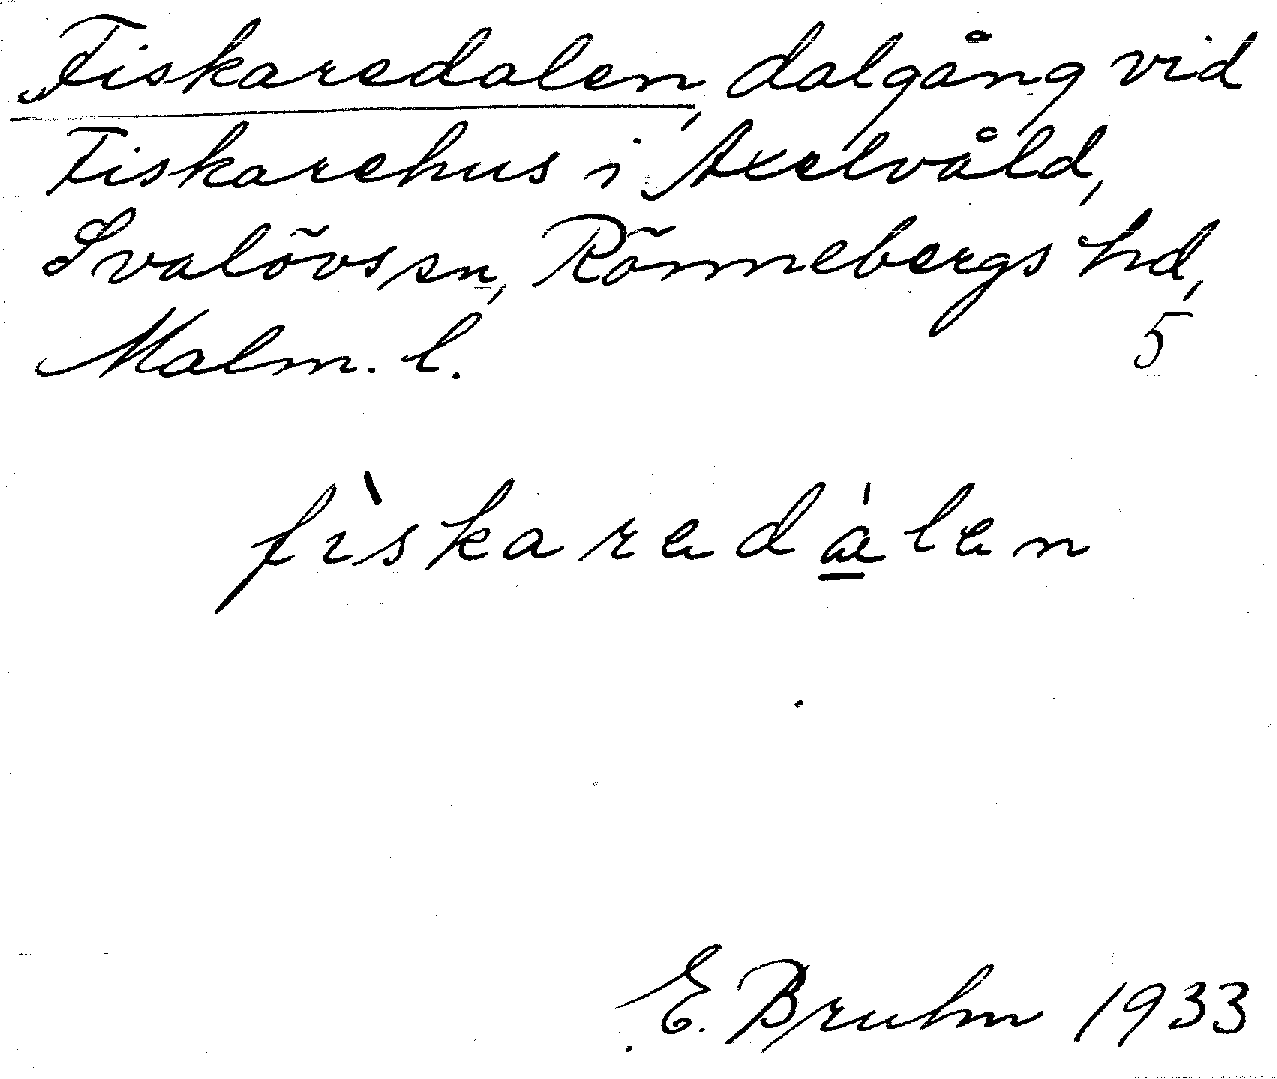 Fiskaredalen, dalgång vid
Fiskarehus i Axelvåld,
Svalövs sn, Rönnebergs hd,
Malm. l. 5
fìskaredálen
E. Bruhn 1933